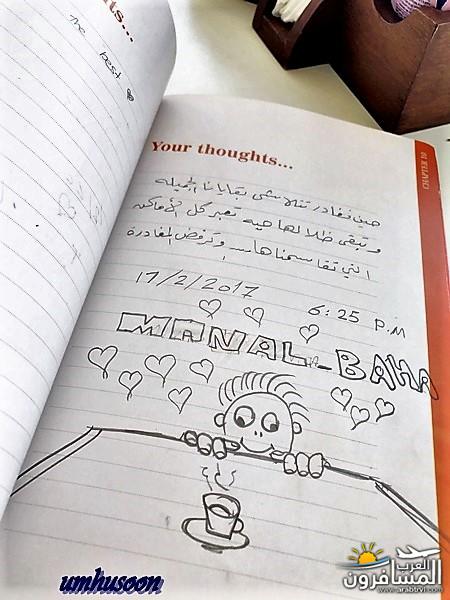 ts...
The best
Your thoughts...
CHAPTER 10
حين نغادر تتلاشى بقايانا الجميله
وتبقى ظلالها حيه تعبر كل الأماكن
التي تقاسمناها.... وترفض المغادرة
17/2/2017
6:25 P.M
MANAL-BAHA
umhusoon
العرب
المسافرون
www.arabtrvl.com